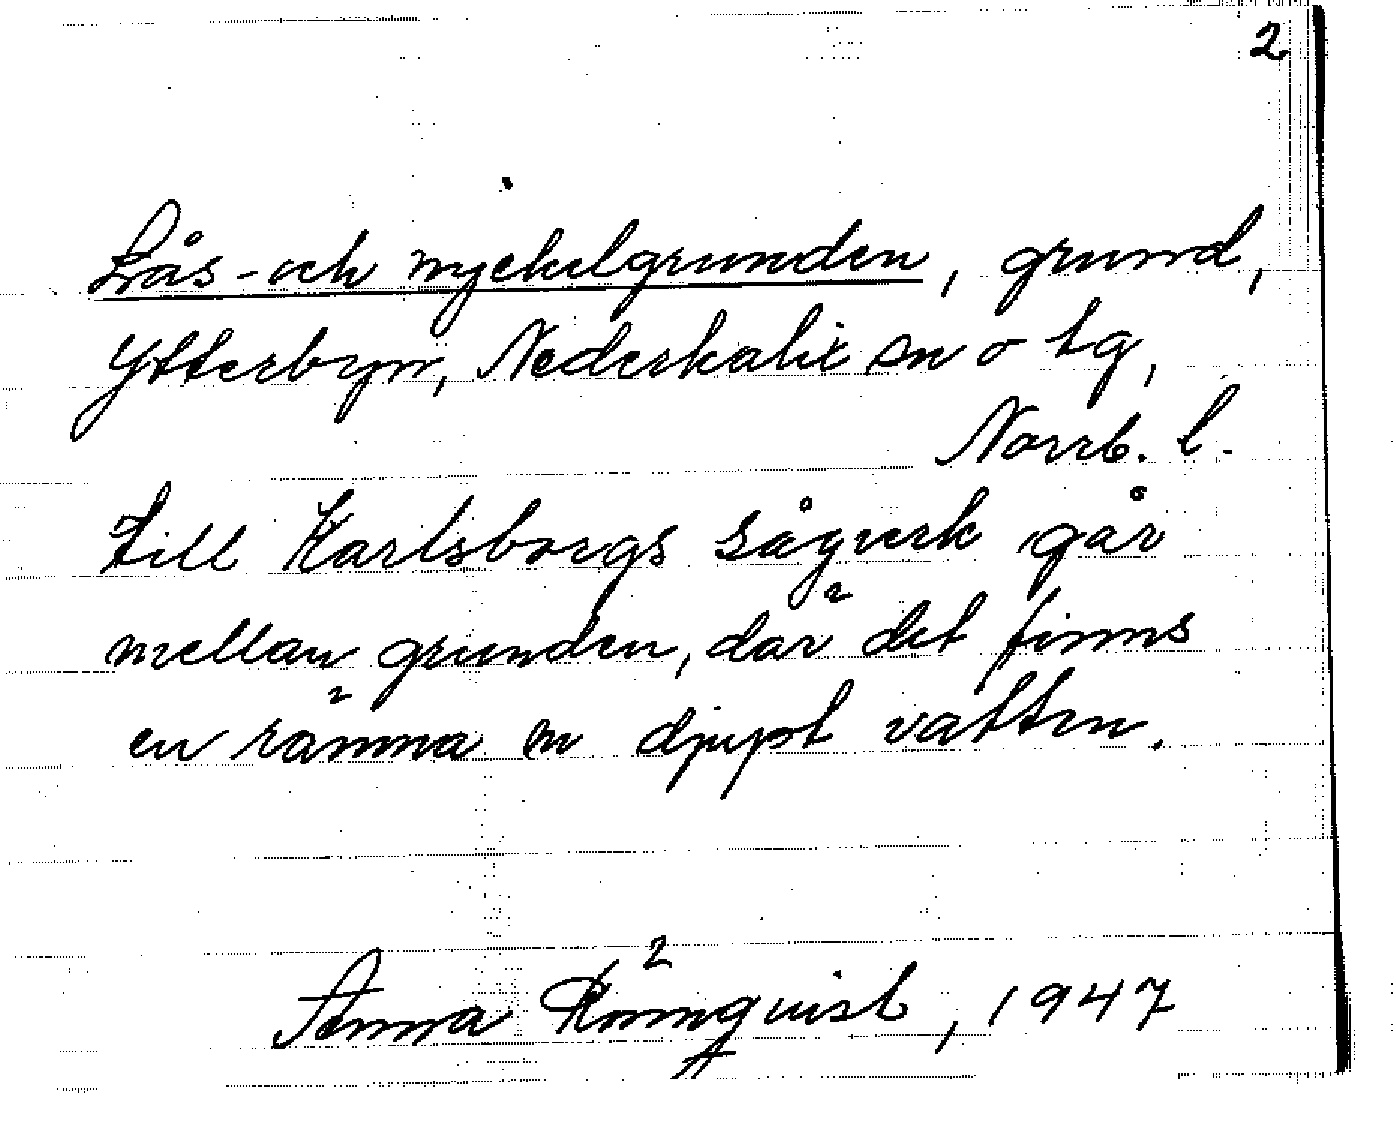 2
Lås- och nyckelgrunden, grund,
Ytterbyn, Nederkalix sn o tg,
Norrb. l.
till Karlsborgs sågverk går
mellan grunden, där det finns
en ränna m djupt vatten.
Anna Rönnqvist, 1947